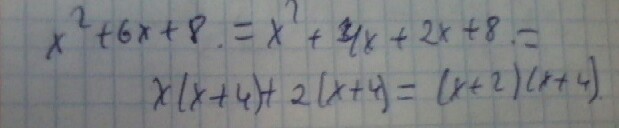 x² + 6x + 8 = x² + 4x + 2x + 8 =
x(x+4) + 2(x+4) = (x+2)(x+4)